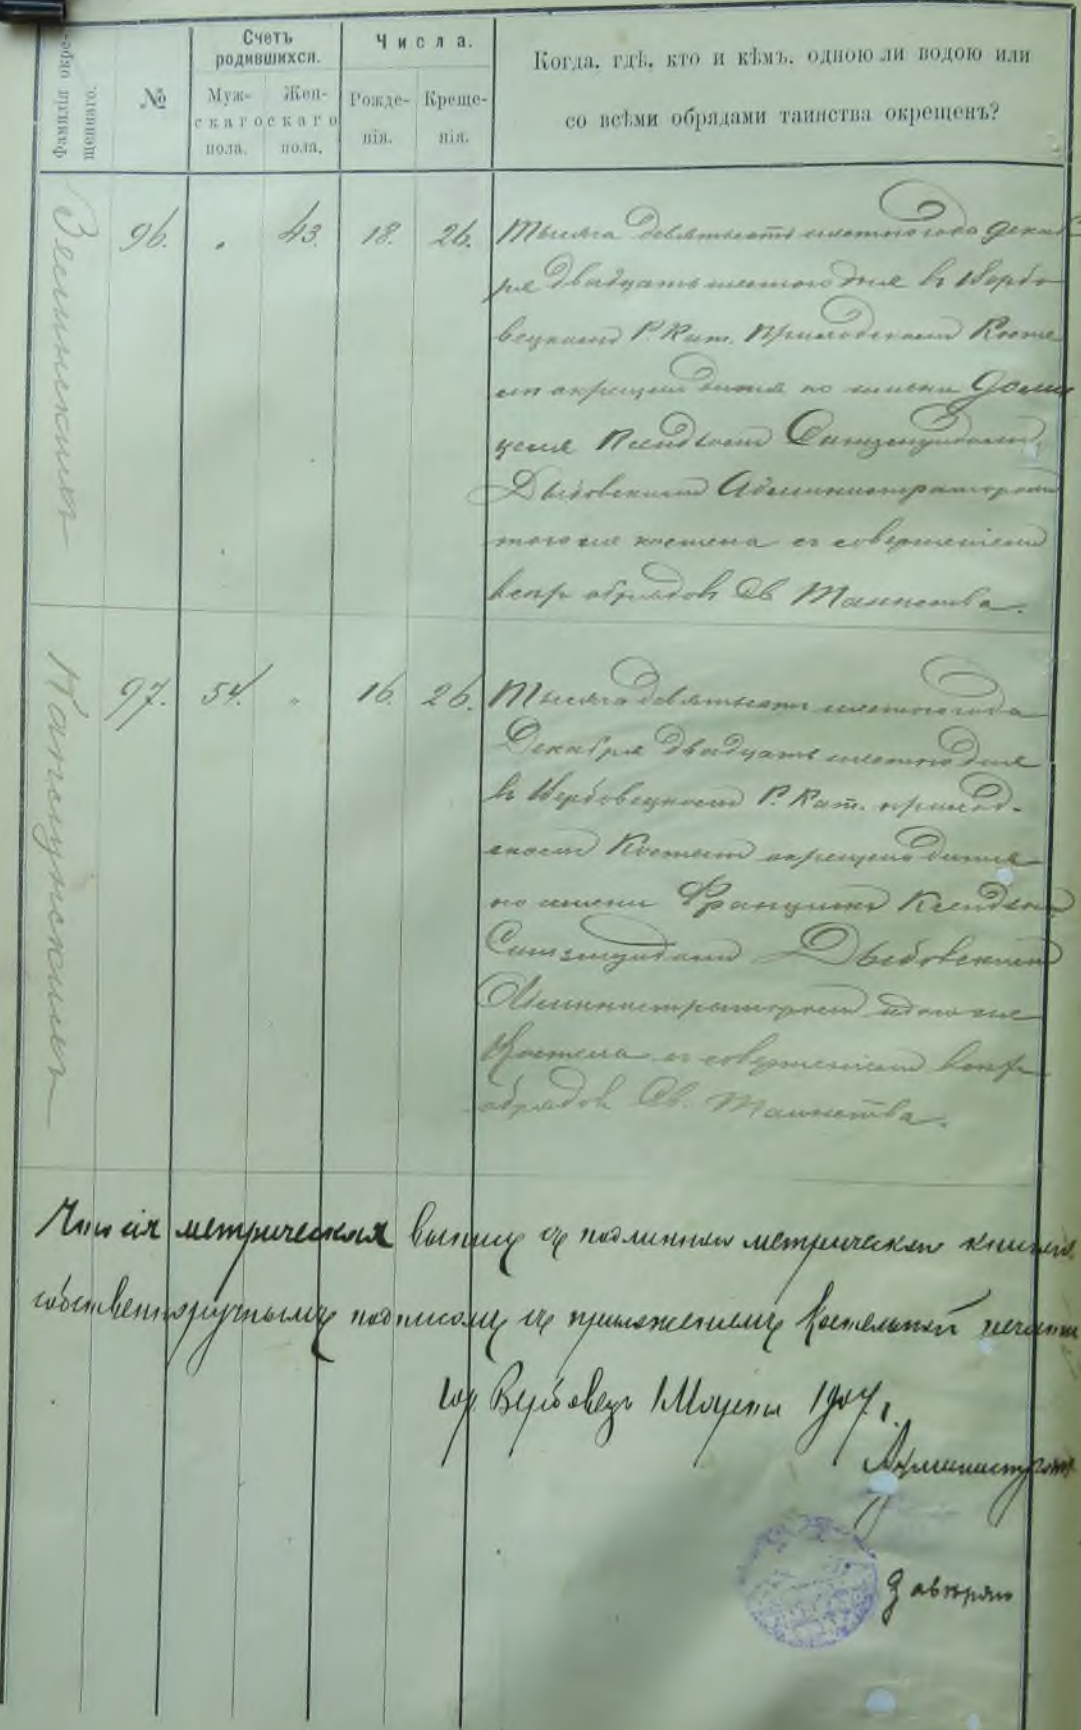 Фамилія окре-
щеннаго.
№
Счетъ
родившихся.
Муж-
скаго
пола.
Жен-
скаго
пола.
Числа.
Рожде-
нія.
Креще-
нія.
Когда, гдѣ, кто и кѣмъ, одною ли водою или
со всѣми обрядами таинства окрещенъ?
96.
43.
18.
26.
Тысяча девятьсотъ шестого года Декаб
ря двадцать шестого дня въ Вербо
вецкомъ Р. Кат. Приходскомъ Косте
лѣ окрещено дитя по имени
Ксендзомъ Сигизмундомъ
Дыбовскимъ Администраторомъ
того же костела съ совершеніемъ
всѣхъ обрядовъ Св. Таинства.
97.
54.
"
16.
26.
Тысяча девятьсотъ шестого года
Декабря двадцать шестого дня
въ Вербовецкомъ Р. Кат. приход-
скомъ Костелѣ окрещено дитя
по имени Францискъ Ксендзомъ
Сигизмундомъ Дыбовскимъ
Администраторомъ того же
Костела съ совершеніемъ всѣхъ
обрядовъ Св. Таинства.
Что сія метрическая съ подлинною метрическою книгою
собственноручнымъ подписомъ съ приложеніемъ Костельной печати
Вербовецъ 1 Марта 1907 г.
Администраторъ